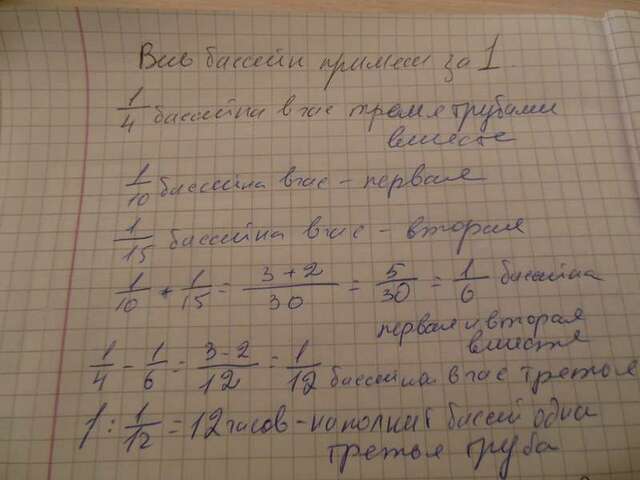 Весь бассейн примем за 1.
1/4 бассейна в час тремя трубами
вместе
1/10 бассейна в час - первая
1/15 бассейна в час - вторая
1/10 + 1/15 = 3+2/30 = 5/30 = 1/6 бассейна
первая и вторая
вместе
1/4 - 1/6 = 3-2/12 = 1/12 бассейна в час третья
1 : 1/12 = 12 часов - наполнит бассей одна
третья труба